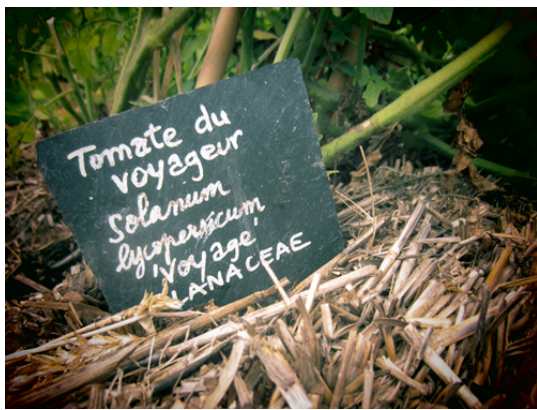 Tomate du
voyageur
Solanum
lycopersicum
'Voyage'
LANACEAE